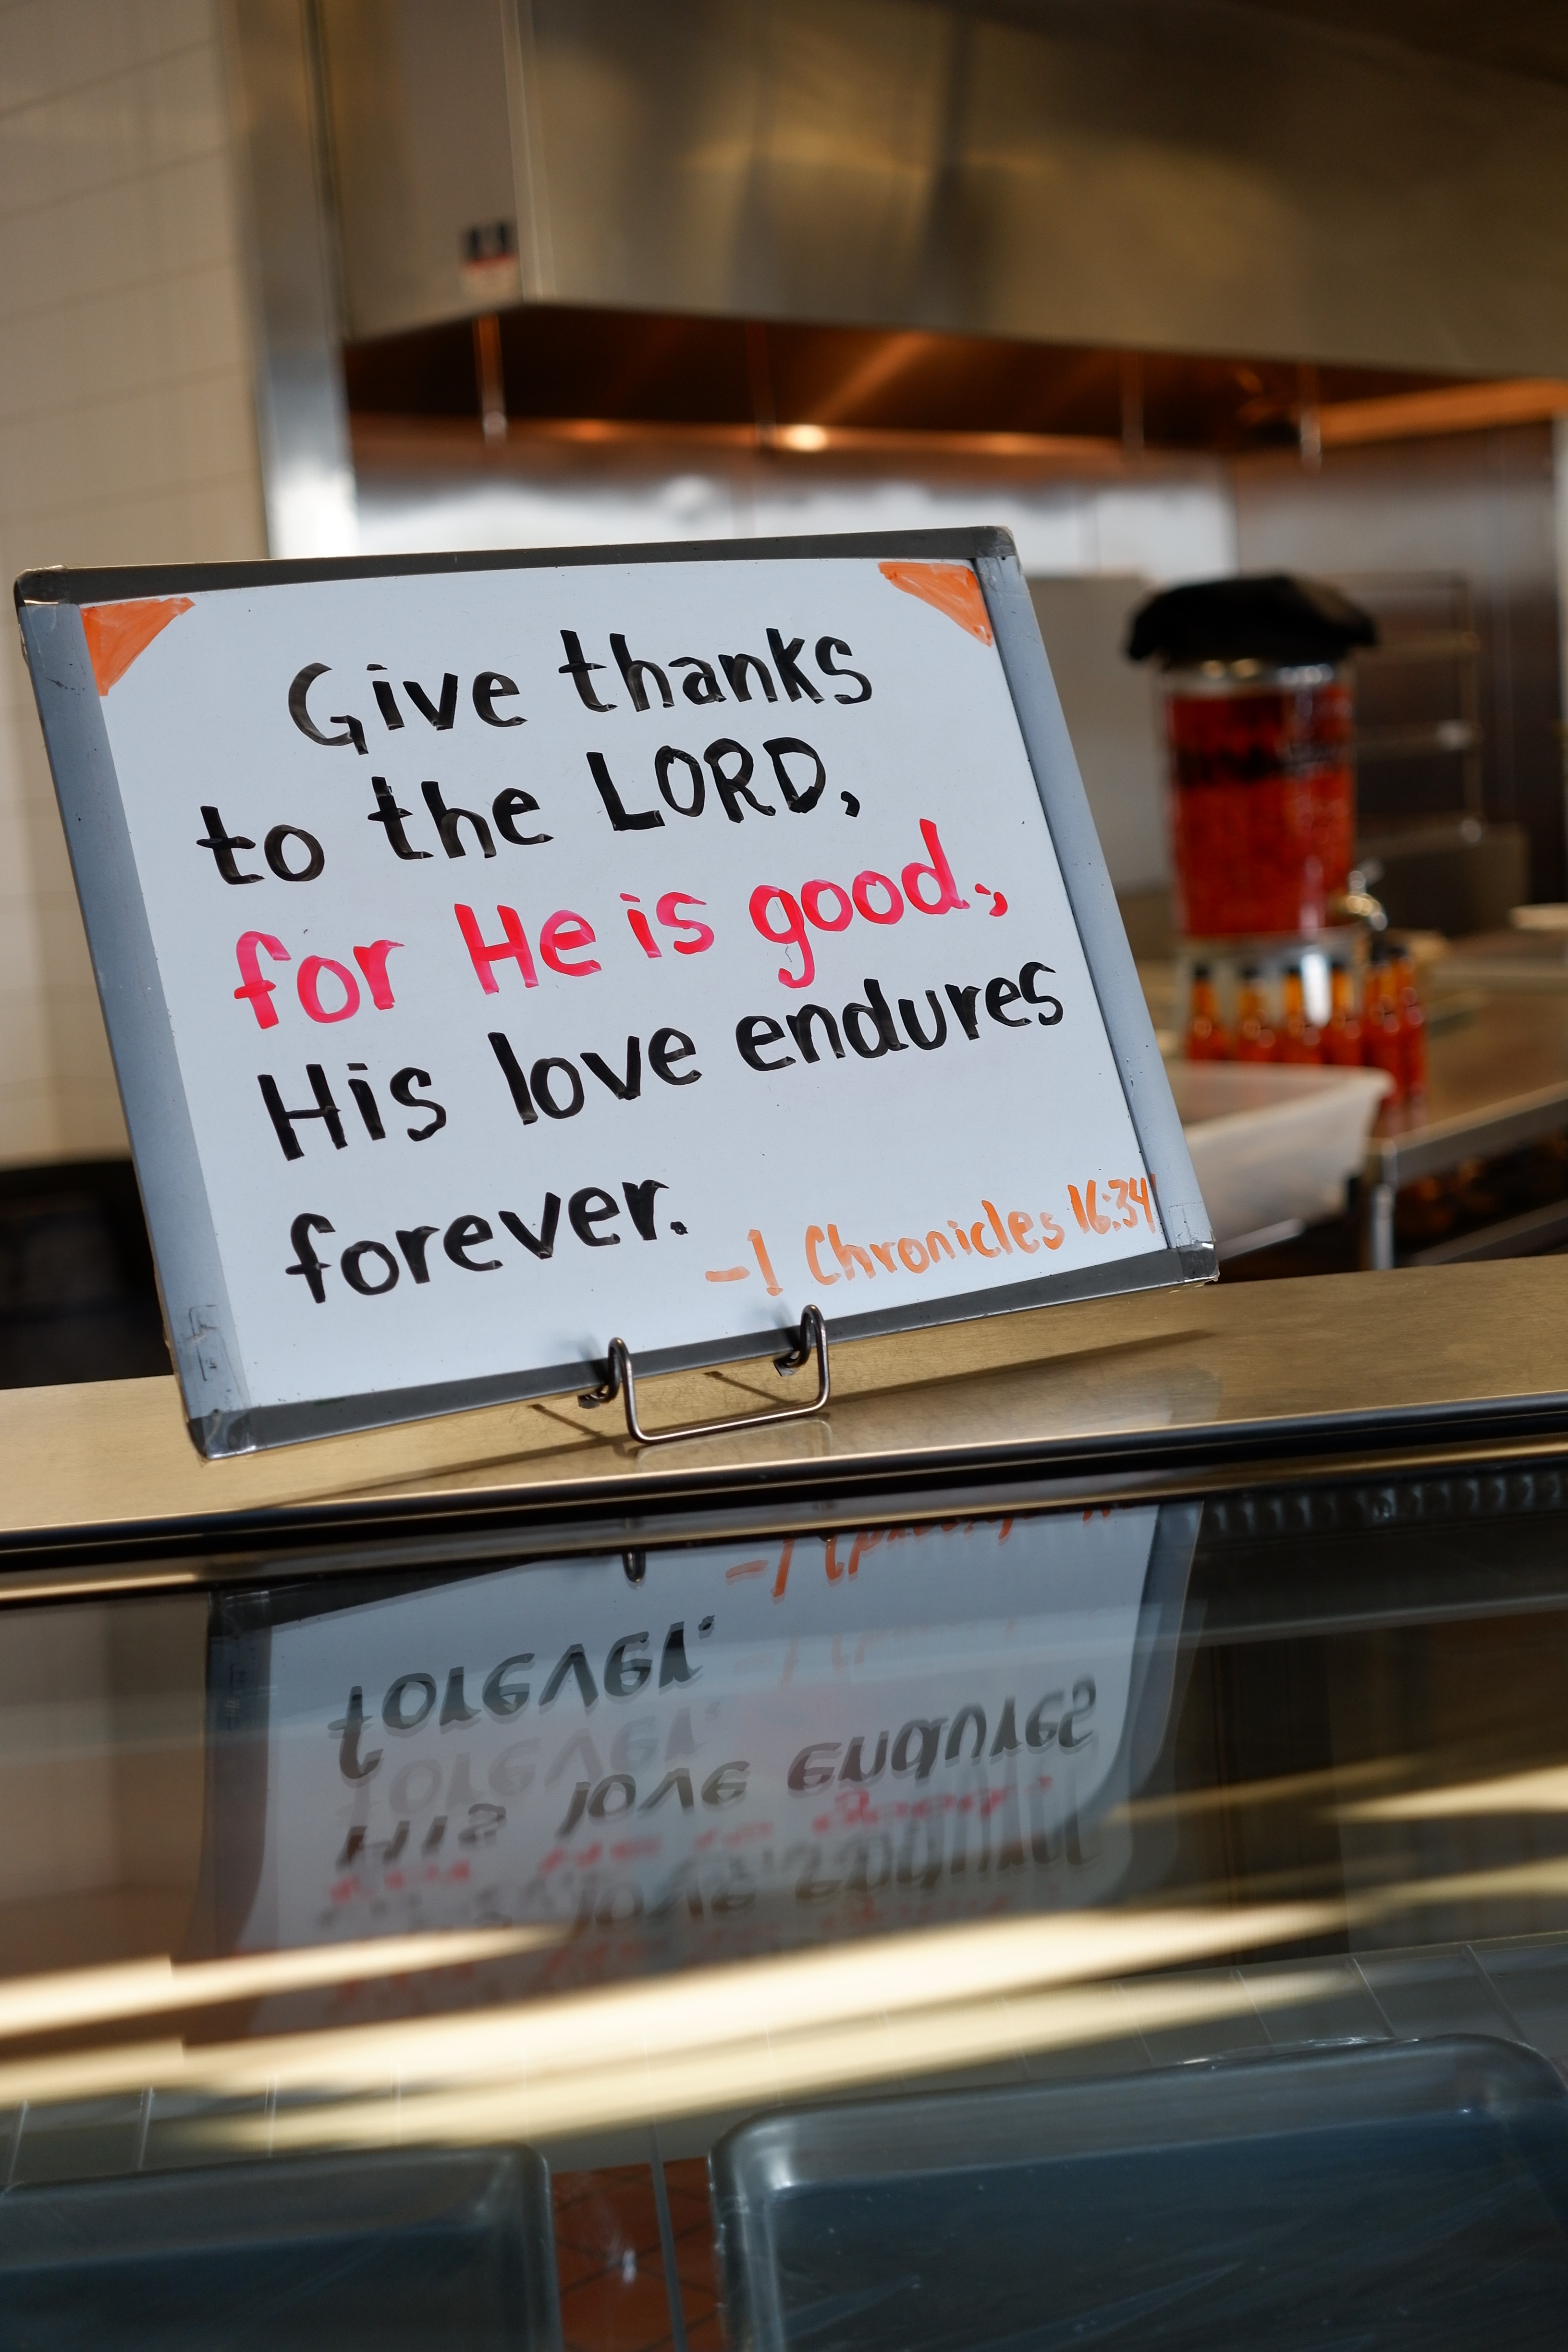 Give thanks
to the LORD,
for He is good,
His love endures
forever.
-1 Chronicles 16:34